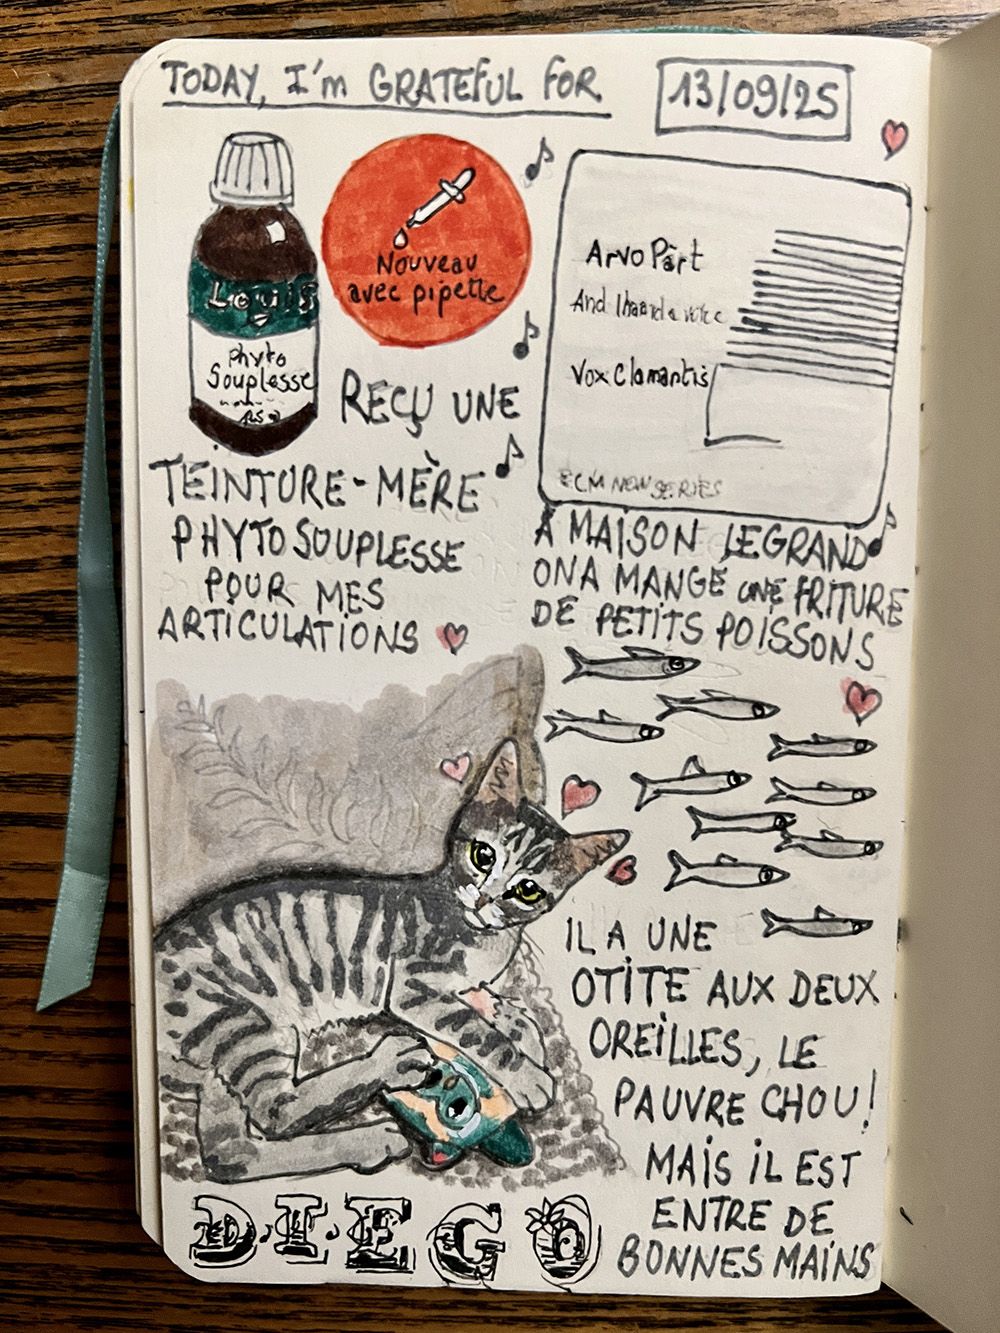 TODAY, I'm GRATEFUL FOR
13/09/25
Louis
Phyto
Souplesse
Nouveau
avec pipette
REÇU UNE
TEINTURE-MÈRE
PHYTO SOUPLESSE
POUR MES
ARTICULATIONS
Arvo Pärt
And I heard a voice
Vox Clamantis
ECM NEW SERIES
À MAISON LEGRAND
ON A MANGÉ UNE FRITURE
DE PETITS POISSONS
IL A UNE
OTITE AUX DEUX
OREILLES, LE
PAUVRE CHOU!
MAIS IL EST
ENTRE DE
BONNES MAINS
DIEGO